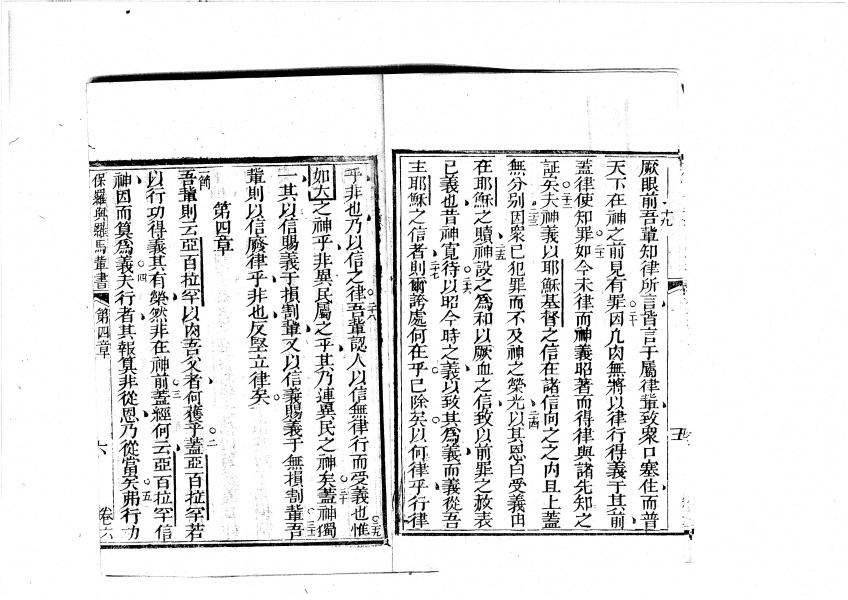 厥眼前吾輩知律所言皆言于屬律輩致眾口塞住而普
十九
天下在神之前見有罪因凡肉無將以律行得義于其前
二十
蓋律使知罪如今未律而神義昭著而得律與諸先知之
二一
証矣夫神義以耶穌基督之信在諸信向之之內且上蓋
二二
無分别因眾已犯罪而不及神之榮光以其恩白受義由
二三
二四
在耶穌之贖神設之為和以厥血之信致以前罪之赦表
二五
己義也昔神寛待以昭今時之義以致其為義而義從吾
二六
主耶穌之信者則爾誇處何在乎已除矣以何律乎行律
二七
五
乎非也乃以信之律吾輩認人以信無律行而受義也惟
二八
二九
如大之神乎非異民屬之乎其乃連異民之神矣蓋神獨
三十
一其以信賜義于損割輩又以信義賜義于無損割輩吾
三一
輩則以信廢律乎非也反堅立律矣
第四章
節
吾輩則云亞百拉罕以肉吾父者何獲乎蓋亞百拉罕若
二
以行功得義其有榮然非在神前蓋經何云亞百拉罕信
三
神因而算為義夫行者其報算非從恩乃從當矣弗行功
四
五
保羅與羅馬輩書
第四章
六
卷六